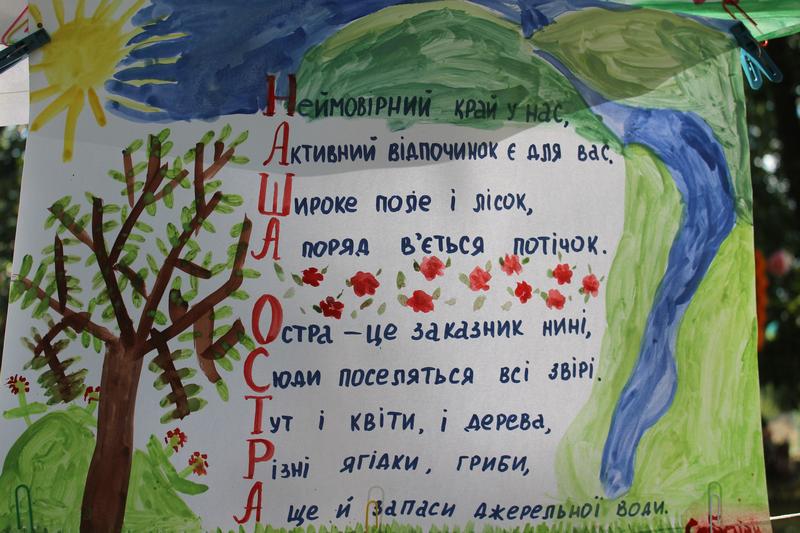 Неймовірний край у нас,
Активний відпочинок є для вас.
Широке поле і лісок,
А поряд в'ється потічок.
Остра – це заказник нині,
Сюди поселяться всі звірі.
Тут і квіти, і дерева,
Різні ягідки, гриби,
А ще й запаси джерельної води.